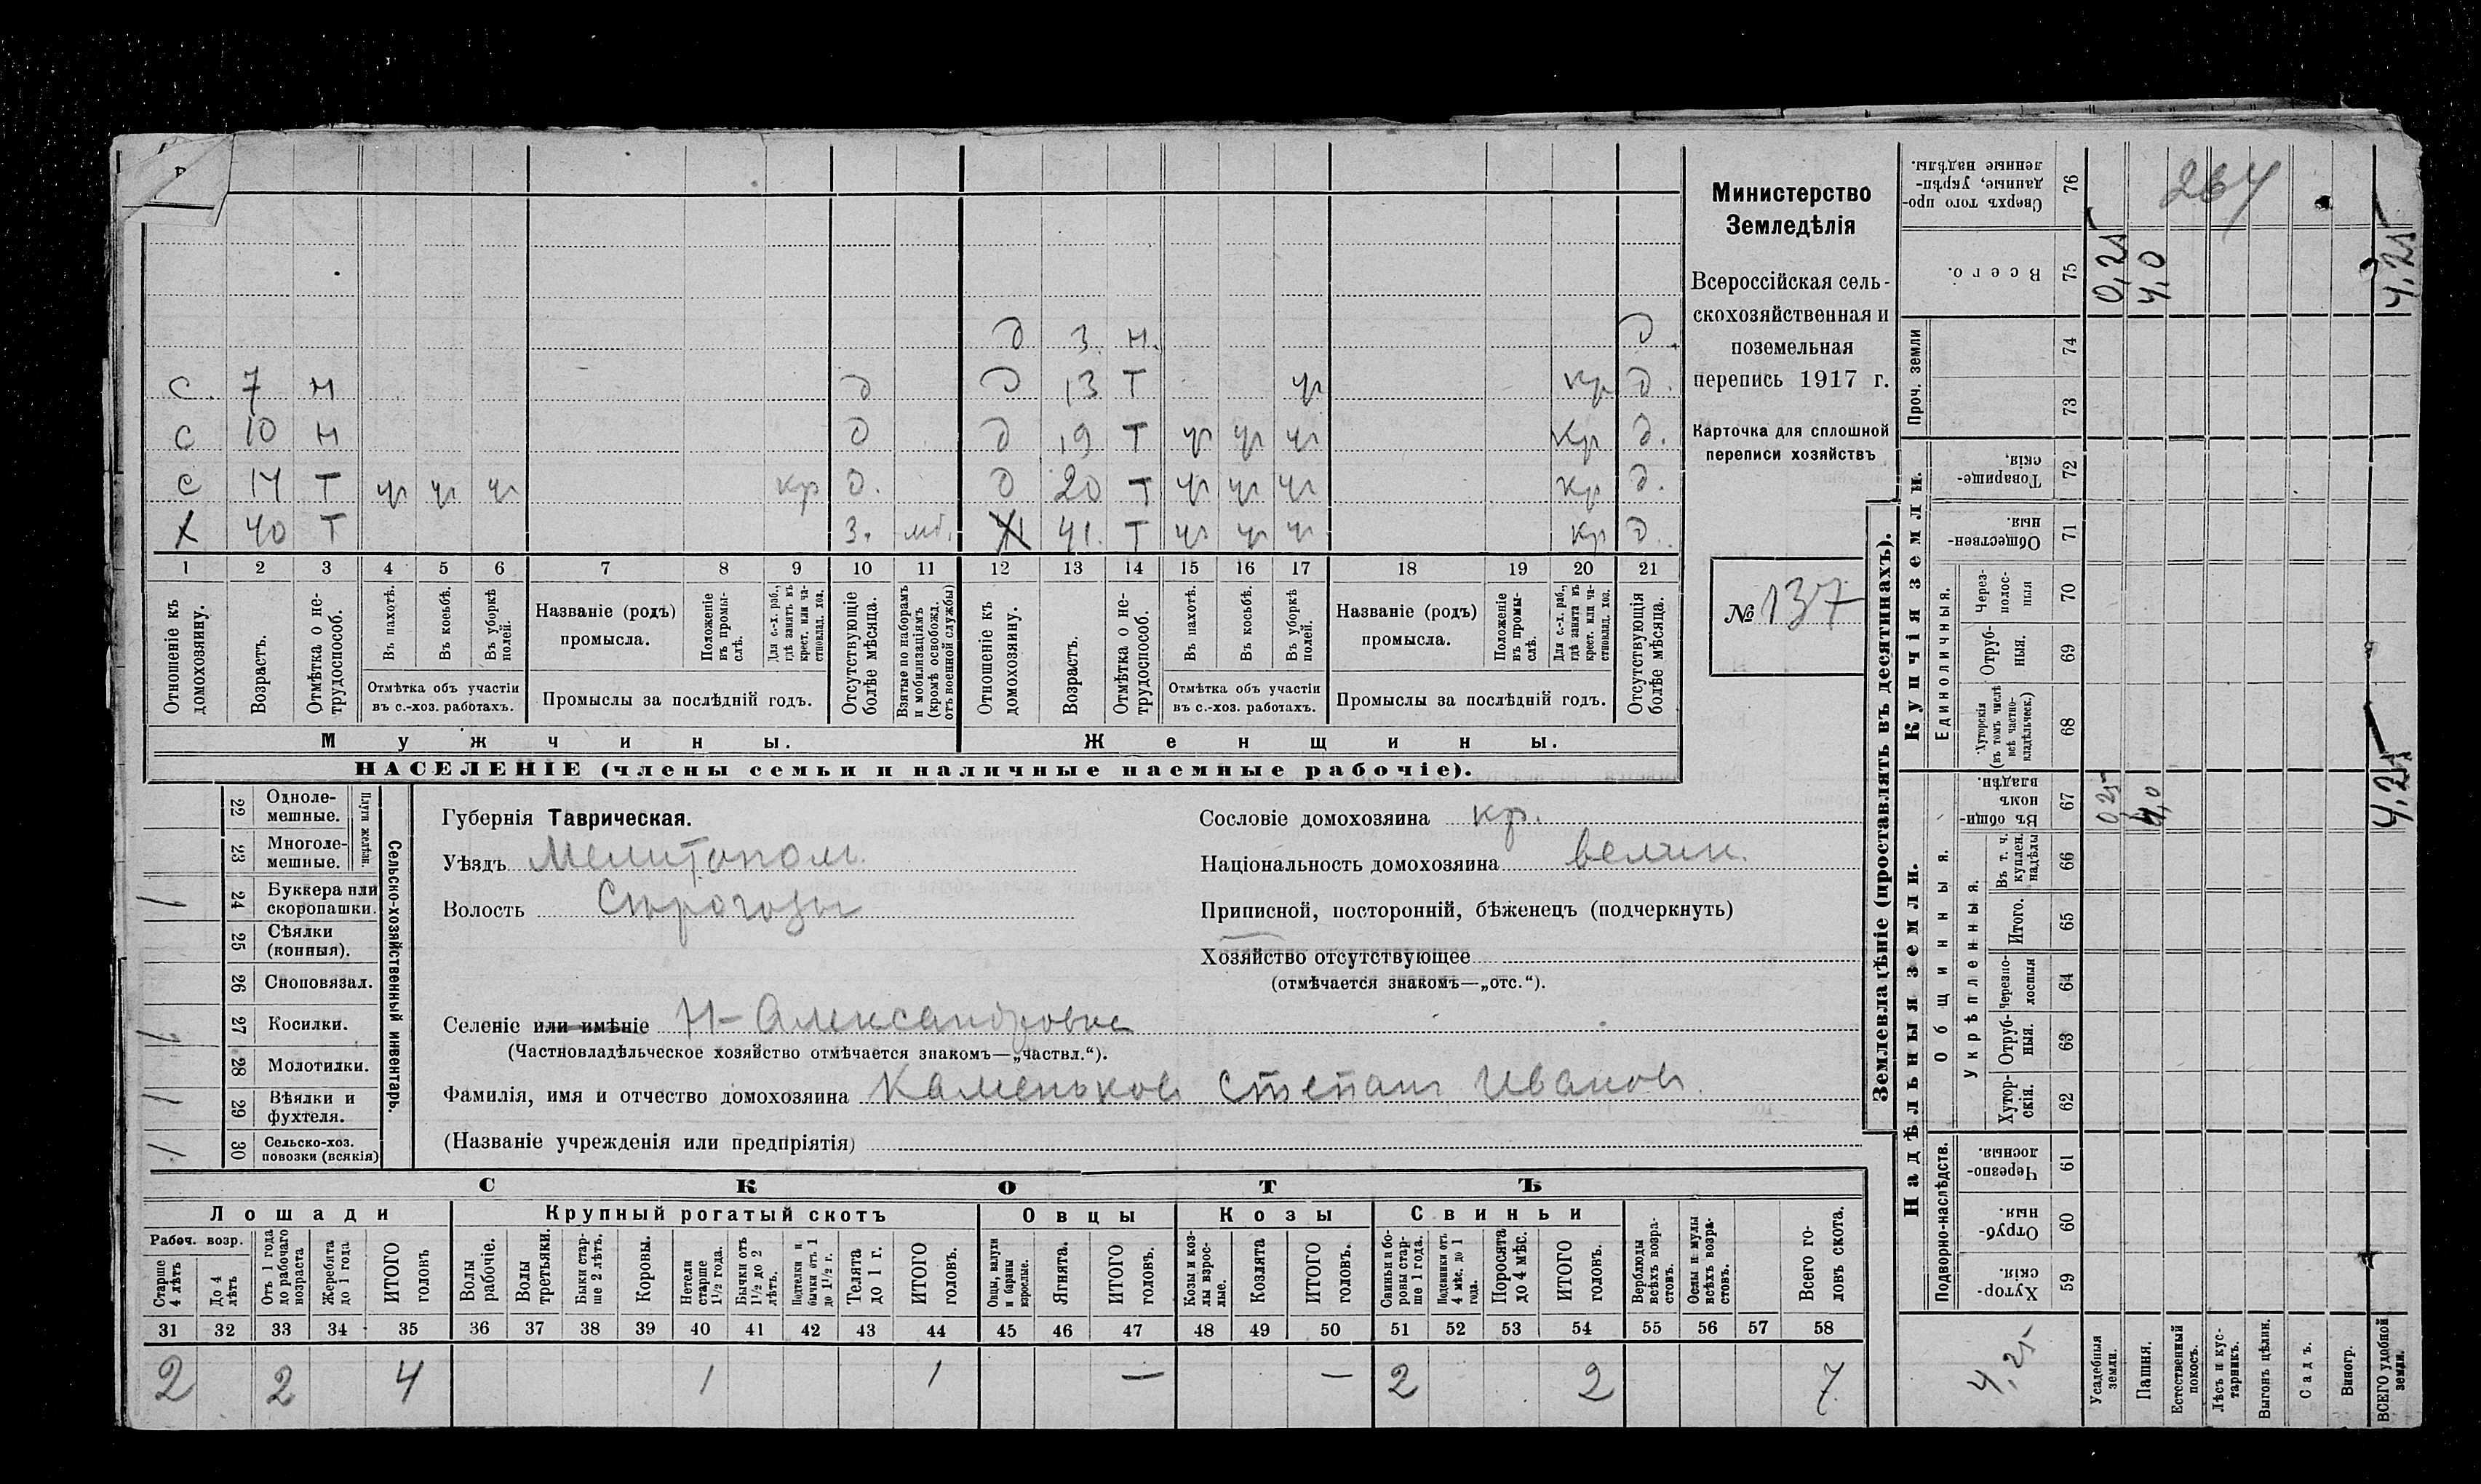 264
Министерство
Земледѣлія
Всероссійская сель-
скохозяйственная и
поземельная
перепись 1917 г.
Карточка для сплошной
переписи хозяйствъ
№ 137
д 3 н. д.
с 7 н д д 13 т чр кр д.
с 10 н д д 19 т чр чр чр кр д.
с 14 т чр чр чр кр д. д 20 т чр чр чр кр д.
х 40 т з. мб. 41 т чр чр чр кр д.
1 2 3 4 5 6 7 8 9 10 11 12 13 14 15 16 17 18 19 20 21
Отношеніе къ домохозяину.
Возрастъ.
Отмѣтка о не-трудоспособ.
Въ пахотѣ.
Въ косьбѣ.
Въ уборкѣ полей.
Отмѣтка объ участіи
въ с.-хоз. работахъ.
Названіе (родъ)
промысла.
Положеніе въ промы-слѣ.
Для с.-х. раб., гдѣ занятъ въ крест. или ча-стновлад. хоз.
Промыслы за послѣдній годъ.
Отсутствующіе болѣе мѣсяца.
Взятые по наборамъ и мобилизаціямъ (кромѣ освобожд. отъ военной службы)
Отношеніе къ домохозяину.
Возрастъ.
Отмѣтка о не-трудоспособ.
Въ пахотѣ.
Въ косьбѣ.
Въ уборкѣ полей.
Отмѣтка объ участіи
въ с.-хоз. работахъ.
Названіе (родъ)
промысла.
Положеніе въ промы-слѣ.
Для с.-х. раб., гдѣ занята въ крест. или ча-стновлад. хоз.
Промыслы за послѣдній годъ.
Отсутствующія болѣе мѣсяца.
Мужчины. Женщины.
НАСЕЛЕНІЕ (члены семьи и наличные наемные рабочіе).
Сельско-хозяйственный инвентарь.
Плуги желѣзн.
22 Одноле-мешные.
23 Многоле-мешные.
/ 24 Буккера или скоропашки.
25 Сѣялки (конныя).
26 Сноповязал.
/ 27 Косилки.
28 Молотилки.
/ 29 Вѣялки и фухтеля.
/ 30 Сельско-хоз. повозки (всякія)
Губернія Таврическая.
Уѣздъ Мелитопол.
Волость Сѣрогозы
Сословіе домохозяина кр.
Національность домохозяина велик.
Приписной, посторонній, бѣженецъ (подчеркнуть)
Хозяйство отсутствующее
(отмѣчается знакомъ—„отс.“).
Селеніе или имѣніе Н-Александровка
(Частновладѣльческое хозяйство отмѣчается знакомъ—„частвл.“).
Фамилія, имя и отчество домохозяина Каменьковъ Степанъ Ивановъ.
(Названіе учрежденія или предпріятія)
СКОТЪ
Лошади Крупный рогатый скотъ Овцы Козы Свиньи
Рабоч. возр.
Старше 4 лѣтъ
До 4 лѣтъ
Отъ 1 года до рабочаго возраста
Жеребята до 1 года
ИТОГО головъ
Волы рабочіе.
Волы третьяки.
Быки стар-ше 2 лѣтъ.
Коровы.
Нетели старше 1½ года.
Бычки отъ 1½ до 2 лѣтъ.
Подтелки и бычки отъ 1 до 1½ г.
Телята до 1 г.
ИТОГО головъ.
Овцы, валухи и бараны взрослые.
Ягнята.
ИТОГО головъ.
Козы и коз-лы взрос-лые.
Козлята
ИТОГО головъ.
Свиньи и бо-ровы стар-ше 1 года.
Подсвинки отъ 4 мѣс. до 1 года.
Поросята до 4 мѣс.
ИТОГО головъ.
Верблюды всѣхъ возра-стовъ.
Ослы и мулы всѣхъ возра-стовъ.
Всего го-ловъ скота.
31 32 33 34 35 36 37 38 39 40 41 42 43 44 45 46 47 48 49 50 51 52 53 54 55 56 57 58
2 2 4 1 1 — — 2 2 7
Землевладѣніе (проставлять въ десятинахъ).
Надѣльныя земли.
Купчія земли.
Проч. земли
Подворно-наслѣдств.
Общинныя.
Укрѣпленныя.
Единоличныя.
Сверхъ того про-данные, укрѣп-ленные надѣлы. 76
Всего. 75 0,25 4,0 4,25
74
73
Товарище-скія, 72
Обществен-ныя. 71
Через-полос-ныя 70
Отруб-ныя. 69
Хуторскія (въ томъ числѣ всѣ частно-владѣльческ.) 68
Въ общи-номъ владѣн. 67 0,25 4,0 4,25
Въ т. ч. куплен. надѣлы 66
Итого. 65
Черезпо-лосныя 64
Отруб-ныя. 63
Хутор-скія. 62
Черезпо-лосныя. 61
Отруб-ныя. 60
Хутор-скія. 59
4,25
Усадебныя земли.
Пашня.
Естественный покосъ.
Лѣсъ и кус-тарникъ.
Выгонъ цѣлин.
Садъ.
Виногр.
ВСЕГО удобной земли.